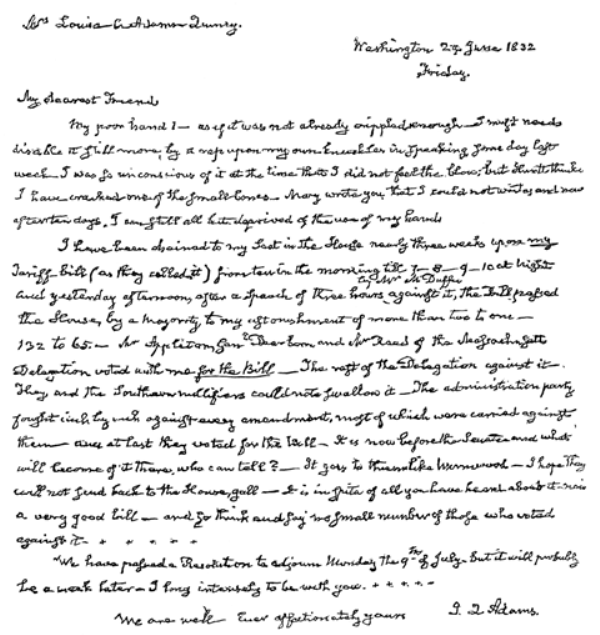 Mrs Louisa C. Adams Quincy.
Washington 29 June 1832
Friday.
My dearest Friend
My poor hand! — as if it was not already crippled enough — I must needs
disable it still more, by a rap upon my own knuckles in speaking some day last
week — I was so unconscious of it at the time that I did not feel the blow, but Huntt thinks
I have cracked one of the small bones — Mary wrote you that I could not write and now
after ten days, I am still all but deprived of the use of my hand
I have been chained to my seat in the House nearly three weeks upon my
Tariff bill (as they called it) from ten in the morning till 7 – 8 – 9 – 10 at night
by Mr McDuffie
and yesterday afternoon, after a speach of three hours against it, the Bill passed
the House, by a Majority to my astonishment of more than two to one —
132 to 65. — Mr Appleton, Genl Dearborn and Mr Reed of the Massachusetts
Delegation voted with me for the Bill — The rest of the Delegation against it —
They and the Southern nullifiers could not swallow it — The administration party
fought inch by inch against every amendment, most of which were carried against
them — and at last they voted for the Bill — It is now before the Senate and what
will become of it there, who can tell? — It goes to them like wormwood — I hope they
will not send back to the House, gall — It is in spite of all you have heard about it
a very good bill — and so think and say no small number of those who voted
against it — + + + + +
We have passed a Resolution to adjourn Monday the 9th of July. But it will probably
be a week later — I long intensely to be with you. + + + + —
We are well Ever affectionately yours J. Q Adams.